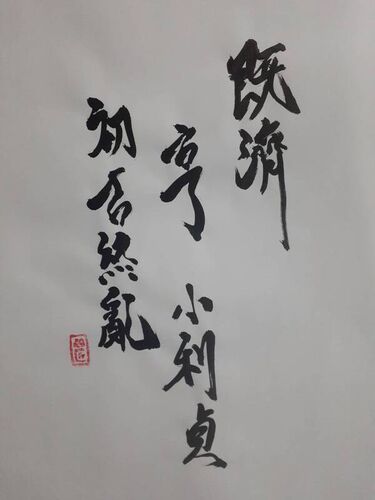 既濟
亨 小利貞
初吉終亂